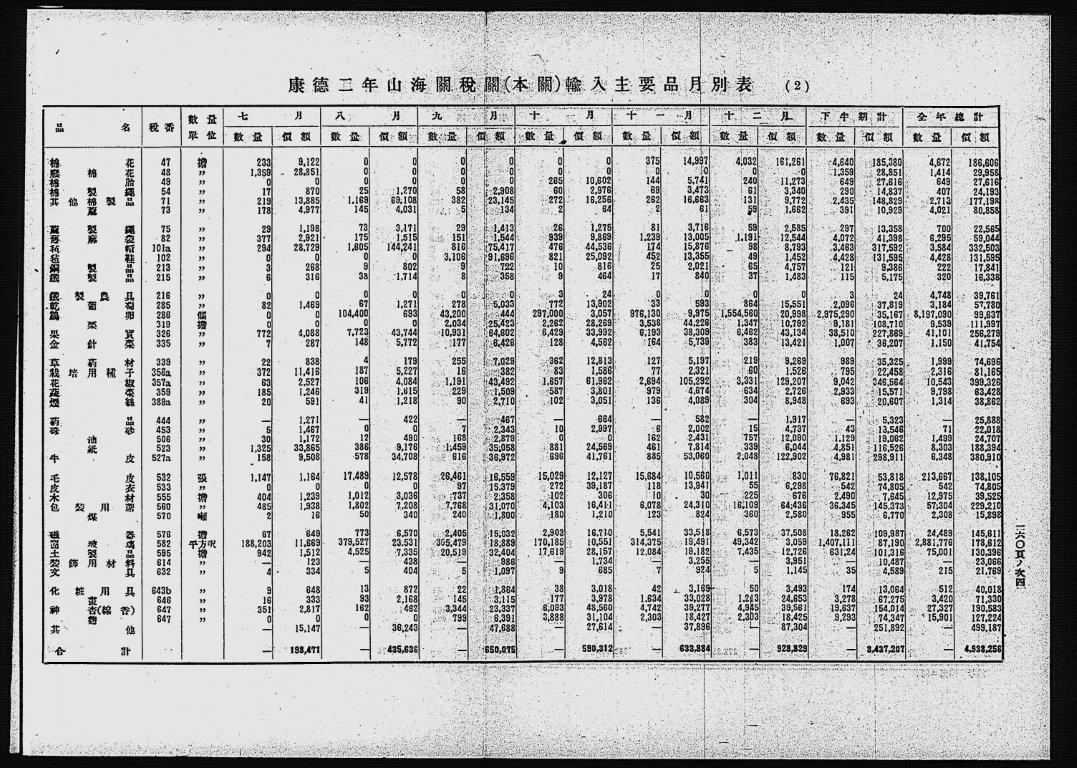 康德二年山海關稅關(本關)輸入主要品月別表 (2)
品名 稅番 數量單位 七月 八月 九月 十月 十一月 十二月 下半期計 全年總計
數量 價額 數量 價額 數量 價額 數量 價額 數量 價額 數量 價額 數量 價額 數量 價額
棉花 47 擔 233 9,122 0 0 0 0 0 0 375 14,997 4,032 161,261 4,640 185,380 4,672 186,606
棉花 48 〃 1,359 28,851 0 0 0 0 0 0 0 0 0 0 1,359 28,851 1,414 29,958
棉胎 49 〃 0 0 0 0 0 0 265 10,602 144 5,741 240 11,273 649 27,616 649 27,616
棉製繩 54 〃 17 870 25 1,270 58 2,908 60 2,976 69 3,473 61 3,340 290 14,837 407 24,193
其他棉製品 71 〃 219 13,885 1,169 69,108 382 23,145 272 16,256 262 16,663 131 9,772 2,435 148,829 2,713 177,198
73 〃 178 4,977 145 4,031 5 134 2 64 2 61 59 1,662 391 10,929 4,021 80,858
製繩 75 〃 29 1,198 73 3,171 29 1,413 26 1,275 81 3,716 59 2,585 297 13,358 700 22,565
蔴袋 82 〃 377 2,921 175 1,515 151 1,544 939 9,869 1,239 13,005 1,191 12,544 4,072 41,398 6,295 59,044
氈帽 101a 〃 294 28,729 1,605 144,241 816 75,417 476 44,536 174 15,876 98 8,793 3,463 317,592 3,584 332,503
氈鞋 102 〃 0 0 0 0 3,106 91,696 821 25,092 452 13,355 49 1,452 4,428 131,595 4,428 131,595
銅製品 213 〃 3 268 9 802 9 722 10 816 25 2,021 65 4,757 121 9,386 222 17,841
鐵製品 215 〃 6 316 38 1,714 8 358 9 464 17 840 37 1,483 115 5,175 320 16,338
鐵製農具 216 〃 0 0 0 0 0 0 3 24 0 0 0 0 3 24 4,748 39,761
乾葡萄 285 〃 82 1,469 67 1,271 278 5,033 772 13,902 33 593 864 15,551 2,096 37,819 3,184 57,780
卵 286 個 0 0 104,400 693 43,200 444 297,000 3,057 976,130 9,975 1,554,560 20,998 2,975,290 35,167 8,197,090 99,637
栗 319 擔 0 0 0 0 2,034 25,423 2,262 28,269 3,538 44,226 1,347 10,792 9,181 108,710 9,539 111,997
果實 326 〃 772 4,088 7,723 43,744 10,931 64,602 6,429 33,992 6,193 38,309 6,462 43,134 38,510 227,869 41,101 256,279
金針菜 335 〃 7 287 148 5,772 177 6,426 128 4,562 164 5,739 383 13,421 1,007 36,207 1,150 41,754
草葯材 339 〃 22 838 4 179 255 7,029 362 12,813 127 5,197 219 9,269 989 35,325 1,999 74,696
栽培用種子 356a 〃 372 11,416 187 5,227 16 382 83 1,586 77 2,321 60 1,526 795 22,458 2,316 81,165
花椒 357a 〃 63 2,527 106 4,084 1,191 43,492 1,657 61,962 2,694 105,292 3,331 129,207 9,042 346,564 10,543 399,326
蔬菜 359 〃 185 1,246 319 1,615 229 1,509 587 3,801 979 4,674 634 2,726 2,933 15,571 9,798 63,428
煙絲 389a 〃 20 591 41 1,218 90 2,710 102 3,051 136 4,089 304 8,948 693 20,607 1,314 38,862
葯品 444 〃 — 1,271 — 422 — 467 — 664 — 582 — 1,917 — 5,323 — 25,888
砂 453 〃 5 1,467 0 0 7 2,343 10 2,997 6 2,002 15 4,737 43 13,546 71 22,018
油 506 〃 30 1,172 12 490 168 2,879 0 0 162 2,431 757 12,090 1,129 19,062 1,499 24,707
紙 523 〃 1,325 33,865 386 9,176 1,459 35,058 881 24,569 461 7,814 339 6,044 4,851 116,526 8,303 188,394
牛皮 527a 〃 158 9,508 578 34,708 616 36,972 696 41,761 885 53,060 2,048 122,902 4,981 298,911 6,348 380,910
毛皮 532 張 1,147 1,164 17,489 12,578 26,461 16,559 15,029 12,127 15,684 10,560 1,011 830 76,821 53,818 213,667 138,105
皮衣 533 〃 0 0 0 0 97 15,379 272 39,187 118 13,941 55 6,298 542 74,805 542 74,805
木材 555 擔 404 1,239 1,012 3,036 737 2,358 102 306 10 30 225 676 2,490 7,645 12,975 39,525
包裝用蓆 560 〃 485 1,938 1,802 7,208 7,768 31,070 4,103 16,411 6,078 24,310 16,109 64,436 36,345 145,373 57,304 229,210
煤 570 噸 2 16 50 340 240 1,800 180 1,210 123 824 360 2,580 955 6,770 2,308 15,898
磁器 576 擔 67 649 773 6,570 2,405 15,032 2,903 16,710 5,541 33,518 6,573 37,508 18,262 109,987 24,489 145,611
玻璃 582 平方呎 188,203 11,669 379,527 23,531 305,479 18,889 170,185 10,551 314,375 19,491 49,342 3,059 1,407,111 87,190 2,881,776 178,612
土製品 595 擔 942 1,512 4,525 7,335 20,519 32,404 17,619 28,157 12,084 19,182 7,435 12,726 631,24 101,316 75,001 130,396
裝飾用材料 614 〃 — 123 — 438 — 986 — 1,734 — 3,255 — 3,951 — 10,487 — 23,066
文具 632 〃 4 334 5 404 5 1,097 9 685 7 924 5 1,145 35 4,589 215 21,769
化粧用具 643b 〃 9 648 13 872 22 1,864 38 3,018 42 3,169 50 3,493 174 13,064 512 40,018
畫 646 〃 16 333 93 2,168 145 3,115 177 3,978 1,634 33,028 1,213 24,653 3,278 67,275 3,420 71,330
神香(線香) 647 〃 351 2,817 162 462 3,344 23,337 6,093 48,560 4,742 39,277 4,945 39,561 19,637 154,014 27,327 190,583
麯 647 〃 0 0 0 0 799 6,391 3,888 31,104 2,303 18,427 2,303 18,425 9,293 74,347 15,901 127,224
其他 — 15,147 — 36,243 — 47,688 — 27,614 — 37,896 — 87,304 — 251,892 — 499,187
合計 — 198,471 — 435,636 — 650,075 — 590,312 — 633,884 — 928,829 — 3,437,207 — 4,938,256
一六〇頁ノ次四